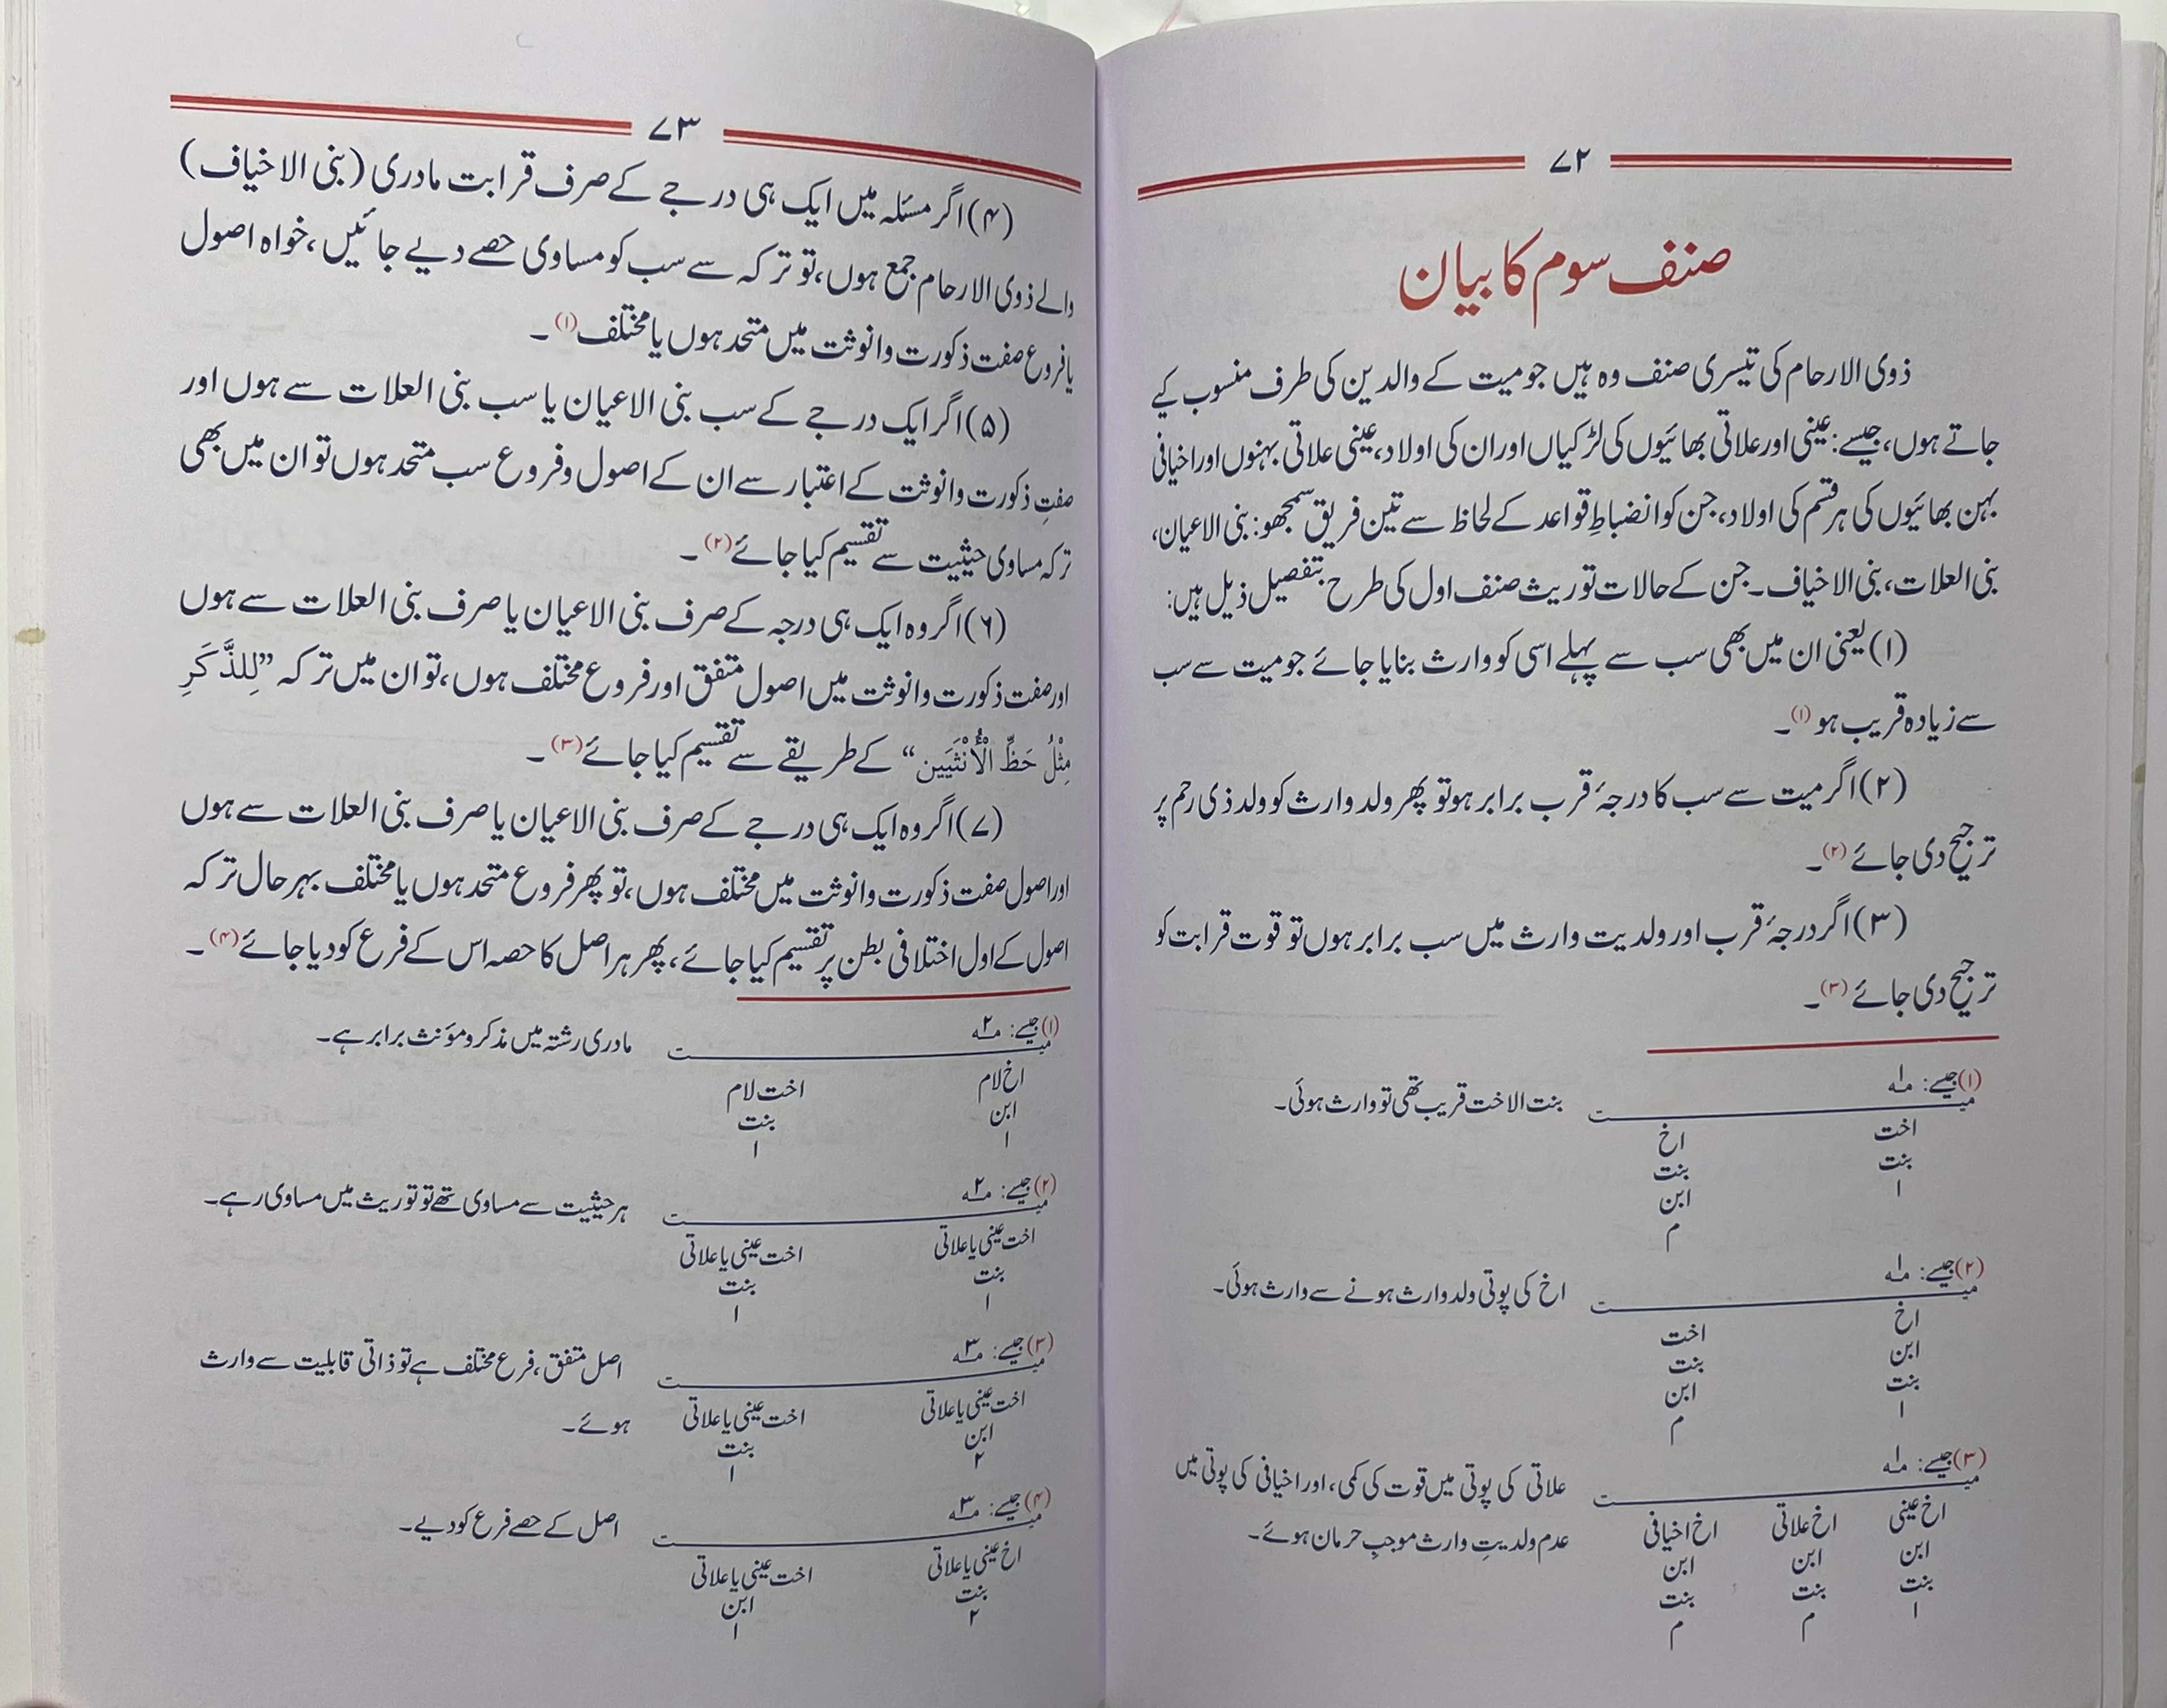 ۷۲
صنف سوم کا بیان
ذوی الارحام کی تیسری صنف وہ ہیں جو میت کے والدین کی طرف منسوب کیے
جاتے ہوں، جیسے: عینی اور علاتی بھائیوں کی لڑکیاں اور ان کی اولاد، عینی علاتی بہنوں اور اخیافی
بہن بھائیوں کی ہر قسم کی اولاد، جن کو انضباطِ قواعد کے لحاظ سے تین فریق سمجھو: بنی الاعیان،
بنی العلات، بنی الاخیاف۔ جن کے حالات توریث صنف اول کی طرح بتفصیل ذیل ہیں:
(۱) یعنی ان میں بھی سب سے پہلے اسی کو وارث بنایا جائے جو میت سے سب
سے زیادہ قریب ہو (۱)۔
(۲) اگر میت سے سب کا درجۂ قرب برابر ہو تو پھر ولد وارث کو ولد ذی رحم پر
ترجیح دی جائے (۲)۔
(۳) اگر درجۂ قرب اور ولدیت وارث میں سب برابر ہوں تو قوت قرابت کو
ترجیح دی جائے (۳)۔
(۱) جیسے: مـ۱ـہ
میـــــت بنت الاخت قریب تھی تو وارث ہوئی۔
اخت اخ
بنت بنت
۱ ابن
م
(۲) جیسے: مـ۱ـہ
میـــــت اخ کی پوتی ولد وارث ہونے سے وارث ہوئی۔
اخ اخت
ابن بنت
بنت ابن
۱ م
(۳) جیسے: مـ۱ـہ
میـــــت علاتی کی پوتی میں قوت کی کمی، اور اخیافی کی پوتی میں
اخ عینی اخ علاتی اخ اخیافی عدم ولدیتِ وارث موجبِ حرمان ہوئے۔
ابن ابن ابن
بنت بنت بنت
۱ م م
۷۳
(۴) اگر مسئلہ میں ایک ہی درجے کے صرف قرابت مادری (بنی الاخیاف)
والے ذوی الارحام جمع ہوں، تو ترکہ سے سب کو مساوی حصے دیے جائیں، خواہ اصول
یا فروع صفت ذکورت و انوثت میں متحد ہوں یا مختلف (۱)۔
(۵) اگر ایک درجے کے سب بنی الاعیان یا سب بنی العلات سے ہوں اور
صفتِ ذکورت و انوثت کے اعتبار سے ان کے اصول و فروع سب متحد ہوں تو ان میں بھی
ترکہ مساوی حیثیت سے تقسیم کیا جائے (۲)۔
(۶) اگر وہ ایک ہی درجہ کے صرف بنی الاعیان یا صرف بنی العلات سے ہوں
اور صفت ذکورت و انوثت میں اصول متفق اور فروع مختلف ہوں، تو ان میں ترکہ ”لِلذَّكَرِ
مِثْلُ حَظِّ الْأُنْثَيَين“ کے طریقے سے تقسیم کیا جائے (۳)۔
(۷) اگر وہ ایک ہی درجے کے صرف بنی الاعیان یا صرف بنی العلات سے ہوں
اور اصول صفت ذکورت و انوثت میں مختلف ہوں، تو پھر فروع متحد ہوں یا مختلف بہر حال ترکہ
اصول کے اول اختلافی بطن پر تقسیم کیا جائے، پھر ہر اصل کا حصہ اس کے فرع کو دیا جائے (۴)۔
(۱) جیسے: مـ۲ـہ
میـــــت مادری رشتہ میں مذکر و مؤنث برابر ہے۔
اخ لام اخت لام
ابن بنت
۱ ۱
(۲) جیسے: مـ۲ـہ
میـــــت ہر حیثیت سے مساوی تھے تو توریث میں مساوی رہے۔
اخت عینی یا علاتی اخت عینی یا علاتی
بنت بنت
۱ ۱
(۳) جیسے: مـ۳ـہ
میـــــت اصل متفق، فرع مختلف ہے تو ذاتی قابلیت سے وارث
اخت عینی یا علاتی اخت عینی یا علاتی ہوئے۔
ابن بنت
۲ ۱
(۴) جیسے: مـ۳ـہ
میـــــت اصل کے حصے فرع کو دیے۔
اخ عینی یا علاتی اخت عینی یا علاتی
بنت ابن
۲ ۱